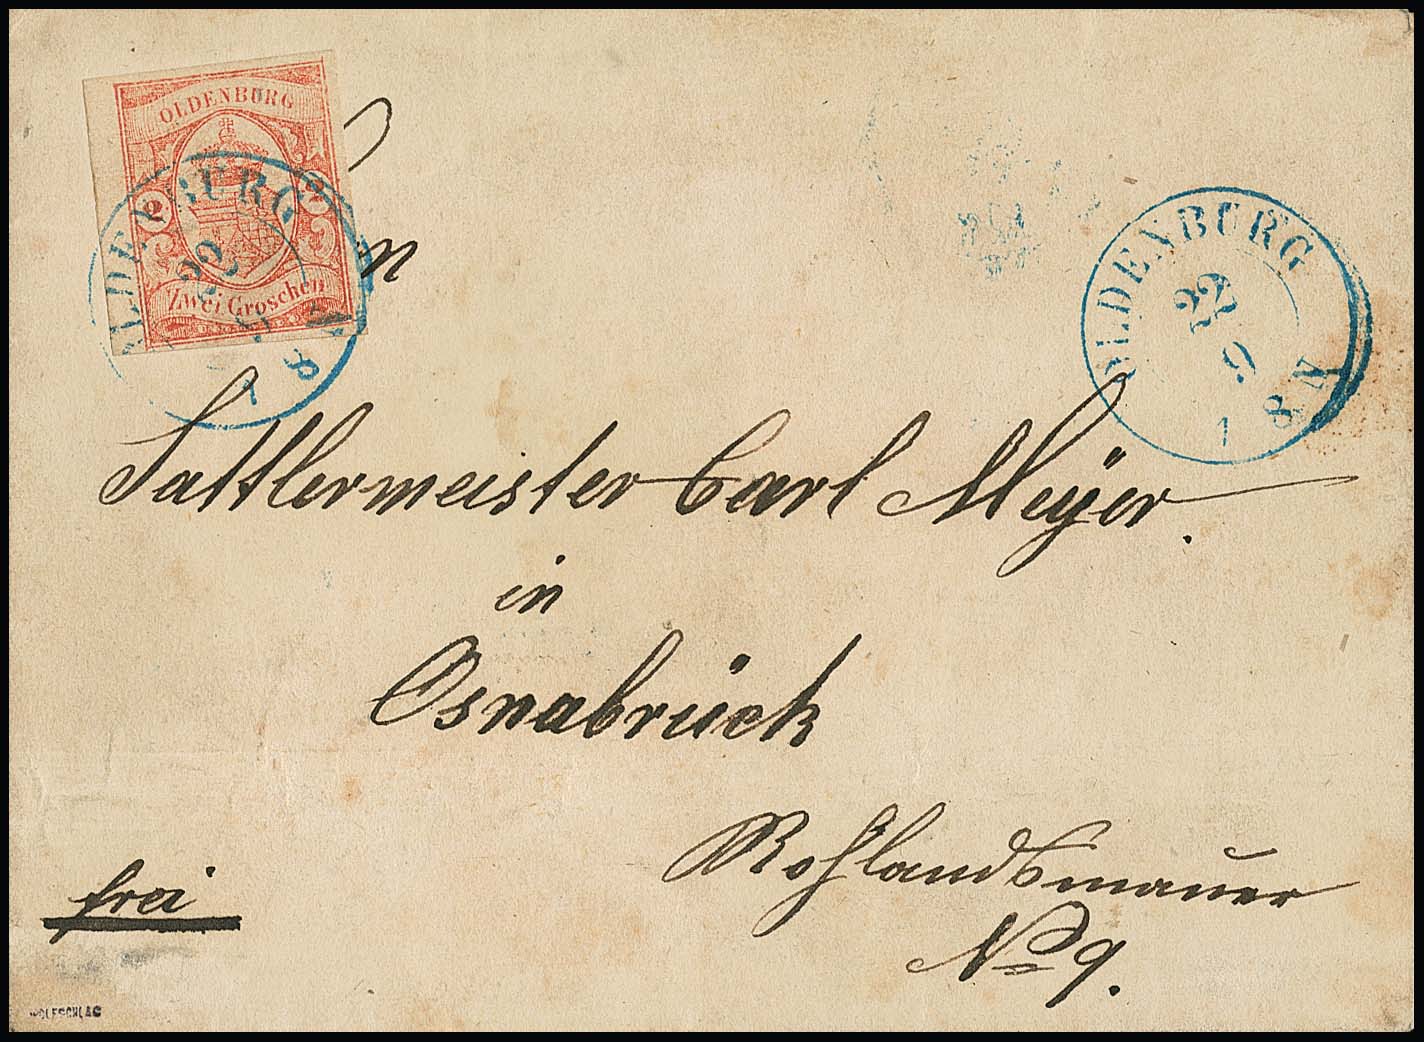 OLDENBURG
2 2
Zwei Groschen
OLDENBURG
22
1 8 N
OLDENBURG
22
9
1 8 N
Sattlermeister Carl Meÿer.
in
Osnabrück
Rohlandsmauer
No 9.
frei